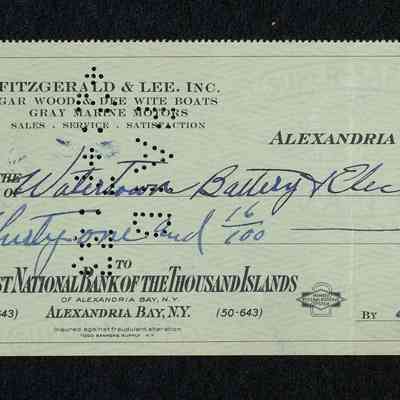 FITZGERALD & LEE, INC.
GAR WOOD & DEE WITE BOATS
GRAY MARINE MOTORS
SALES - SERVICE - SATISFACTION
ALEXANDRIA
THE
OF Watertown Battery & Elec
Thirty one and 16/100
TO
ST NATIONAL BANK OF THE THOUSAND ISLANDS
OF ALEXANDRIA BAY, N.Y.
643) ALEXANDRIA BAY, N.Y. (50-643)
BY
Insured against fraudulent alteration
TODD BANKERS SUPPLY N.Y.